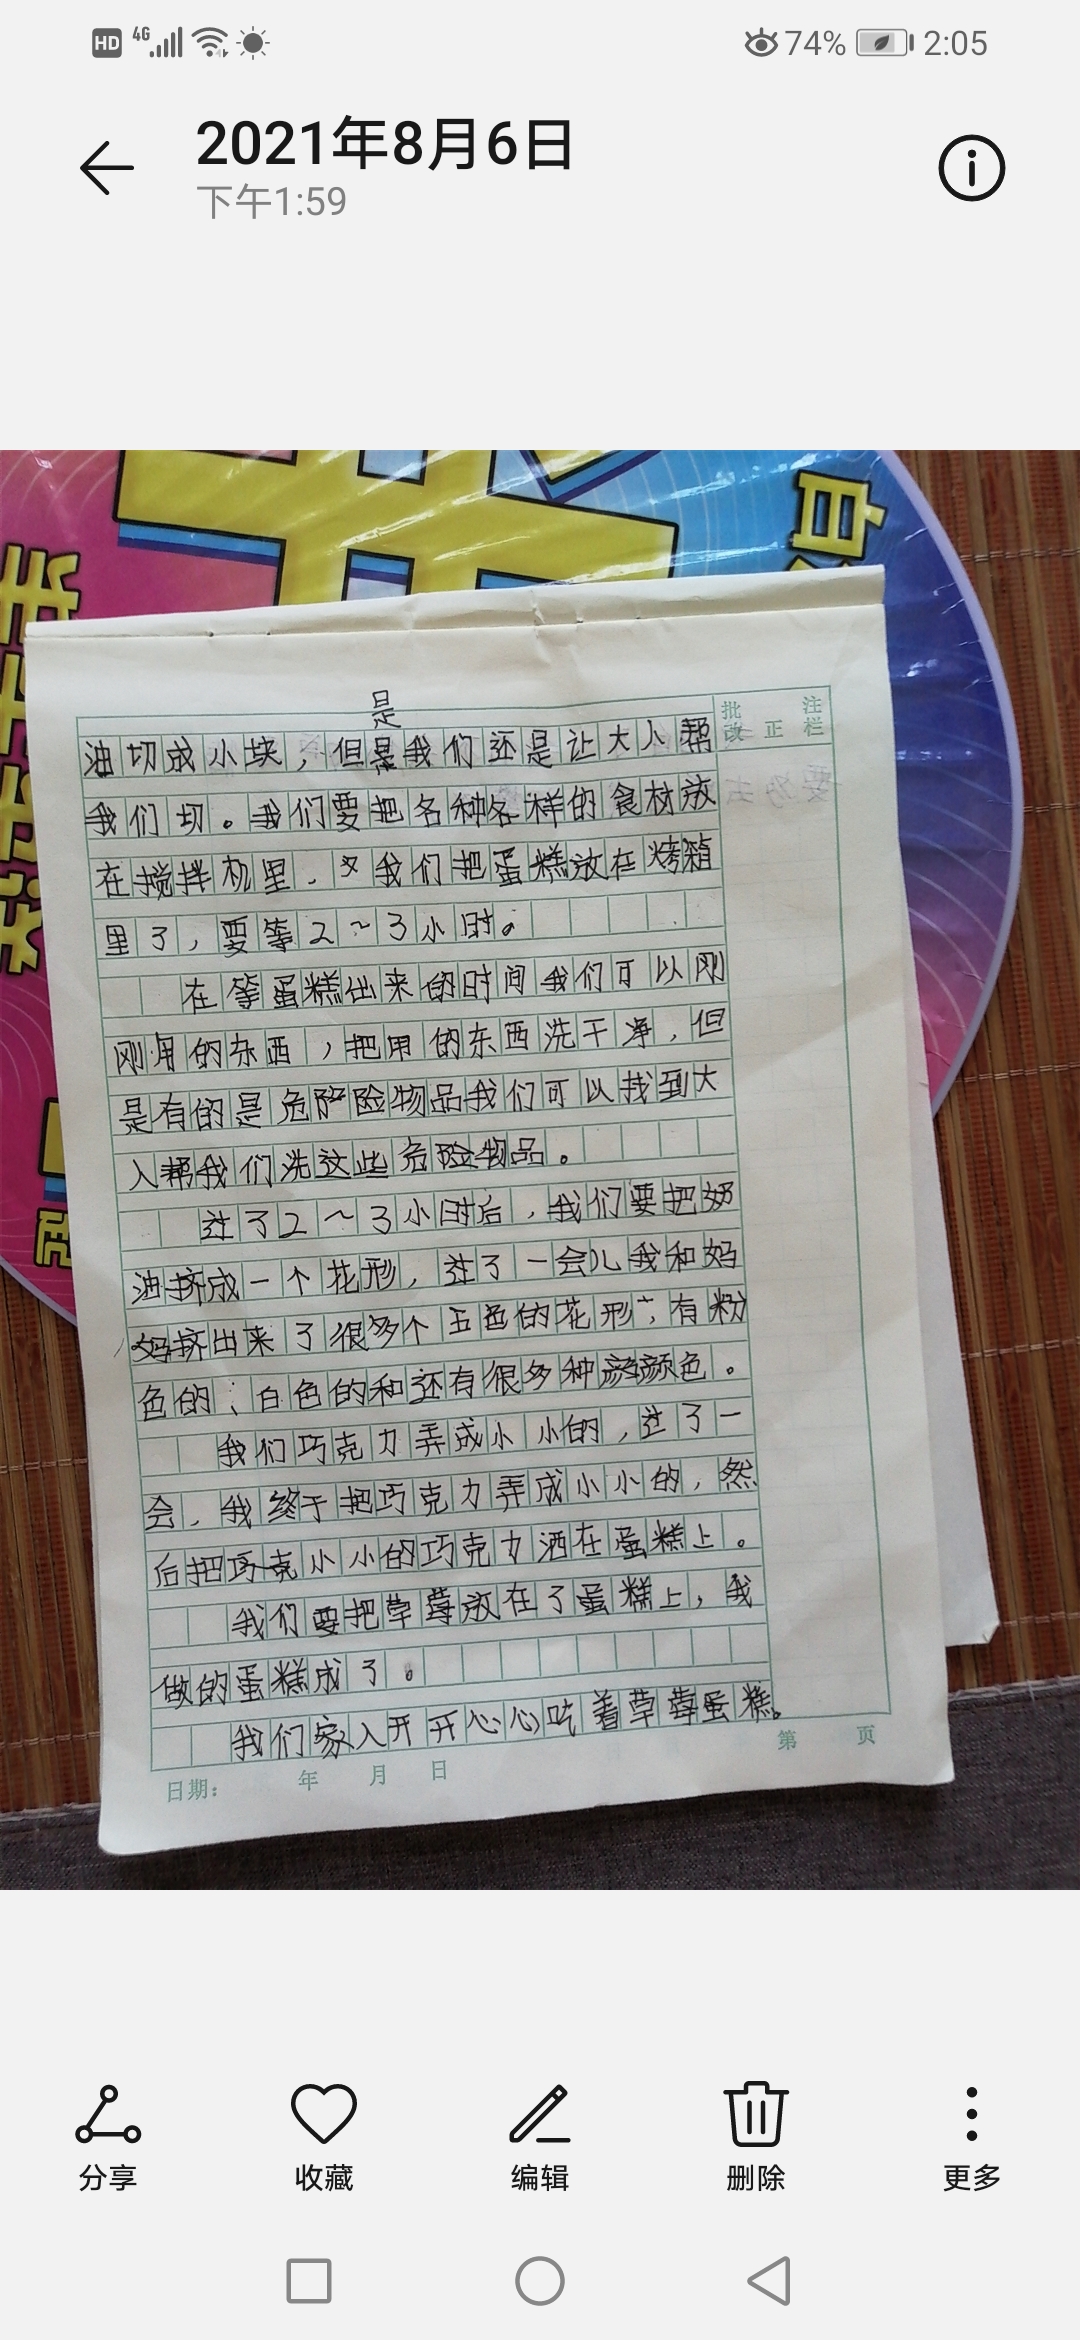 HD 4G 74% 2:05
2021年8月6日
下午1:59
自
批 注
改 正 栏
是
油切成小块，但是我们还是让大人帮
我们切。我们要把各种各样的食材放
在搅拌机里．又我们把蛋糕放在烤箱
里了，要等2～3小时。
在等蛋糕出来的时间我们可以刚
刚用的东西，把用的东西洗干净，但
是有的是危险物品我们可以找到大
人帮我们洗这些危险物品。
过了2～3小时后，我们要把奶
油挤成一个花形，过了一会儿我和妈
妈挤出来了很多个五色的花形，有粉
色的；白色的和还有很多种颜色。
我们巧克力弄成小小的，过了一
会，我终于把巧克力弄成小小的，然
后把巧克小小的巧克力洒在蛋糕上。
我们要把草莓放在了蛋糕上，我
做的蛋糕成了。
我们家人开开心心吃着草莓蛋糕。
第 页
日期： 年 月 日
分享 收藏 编辑 删除 更多